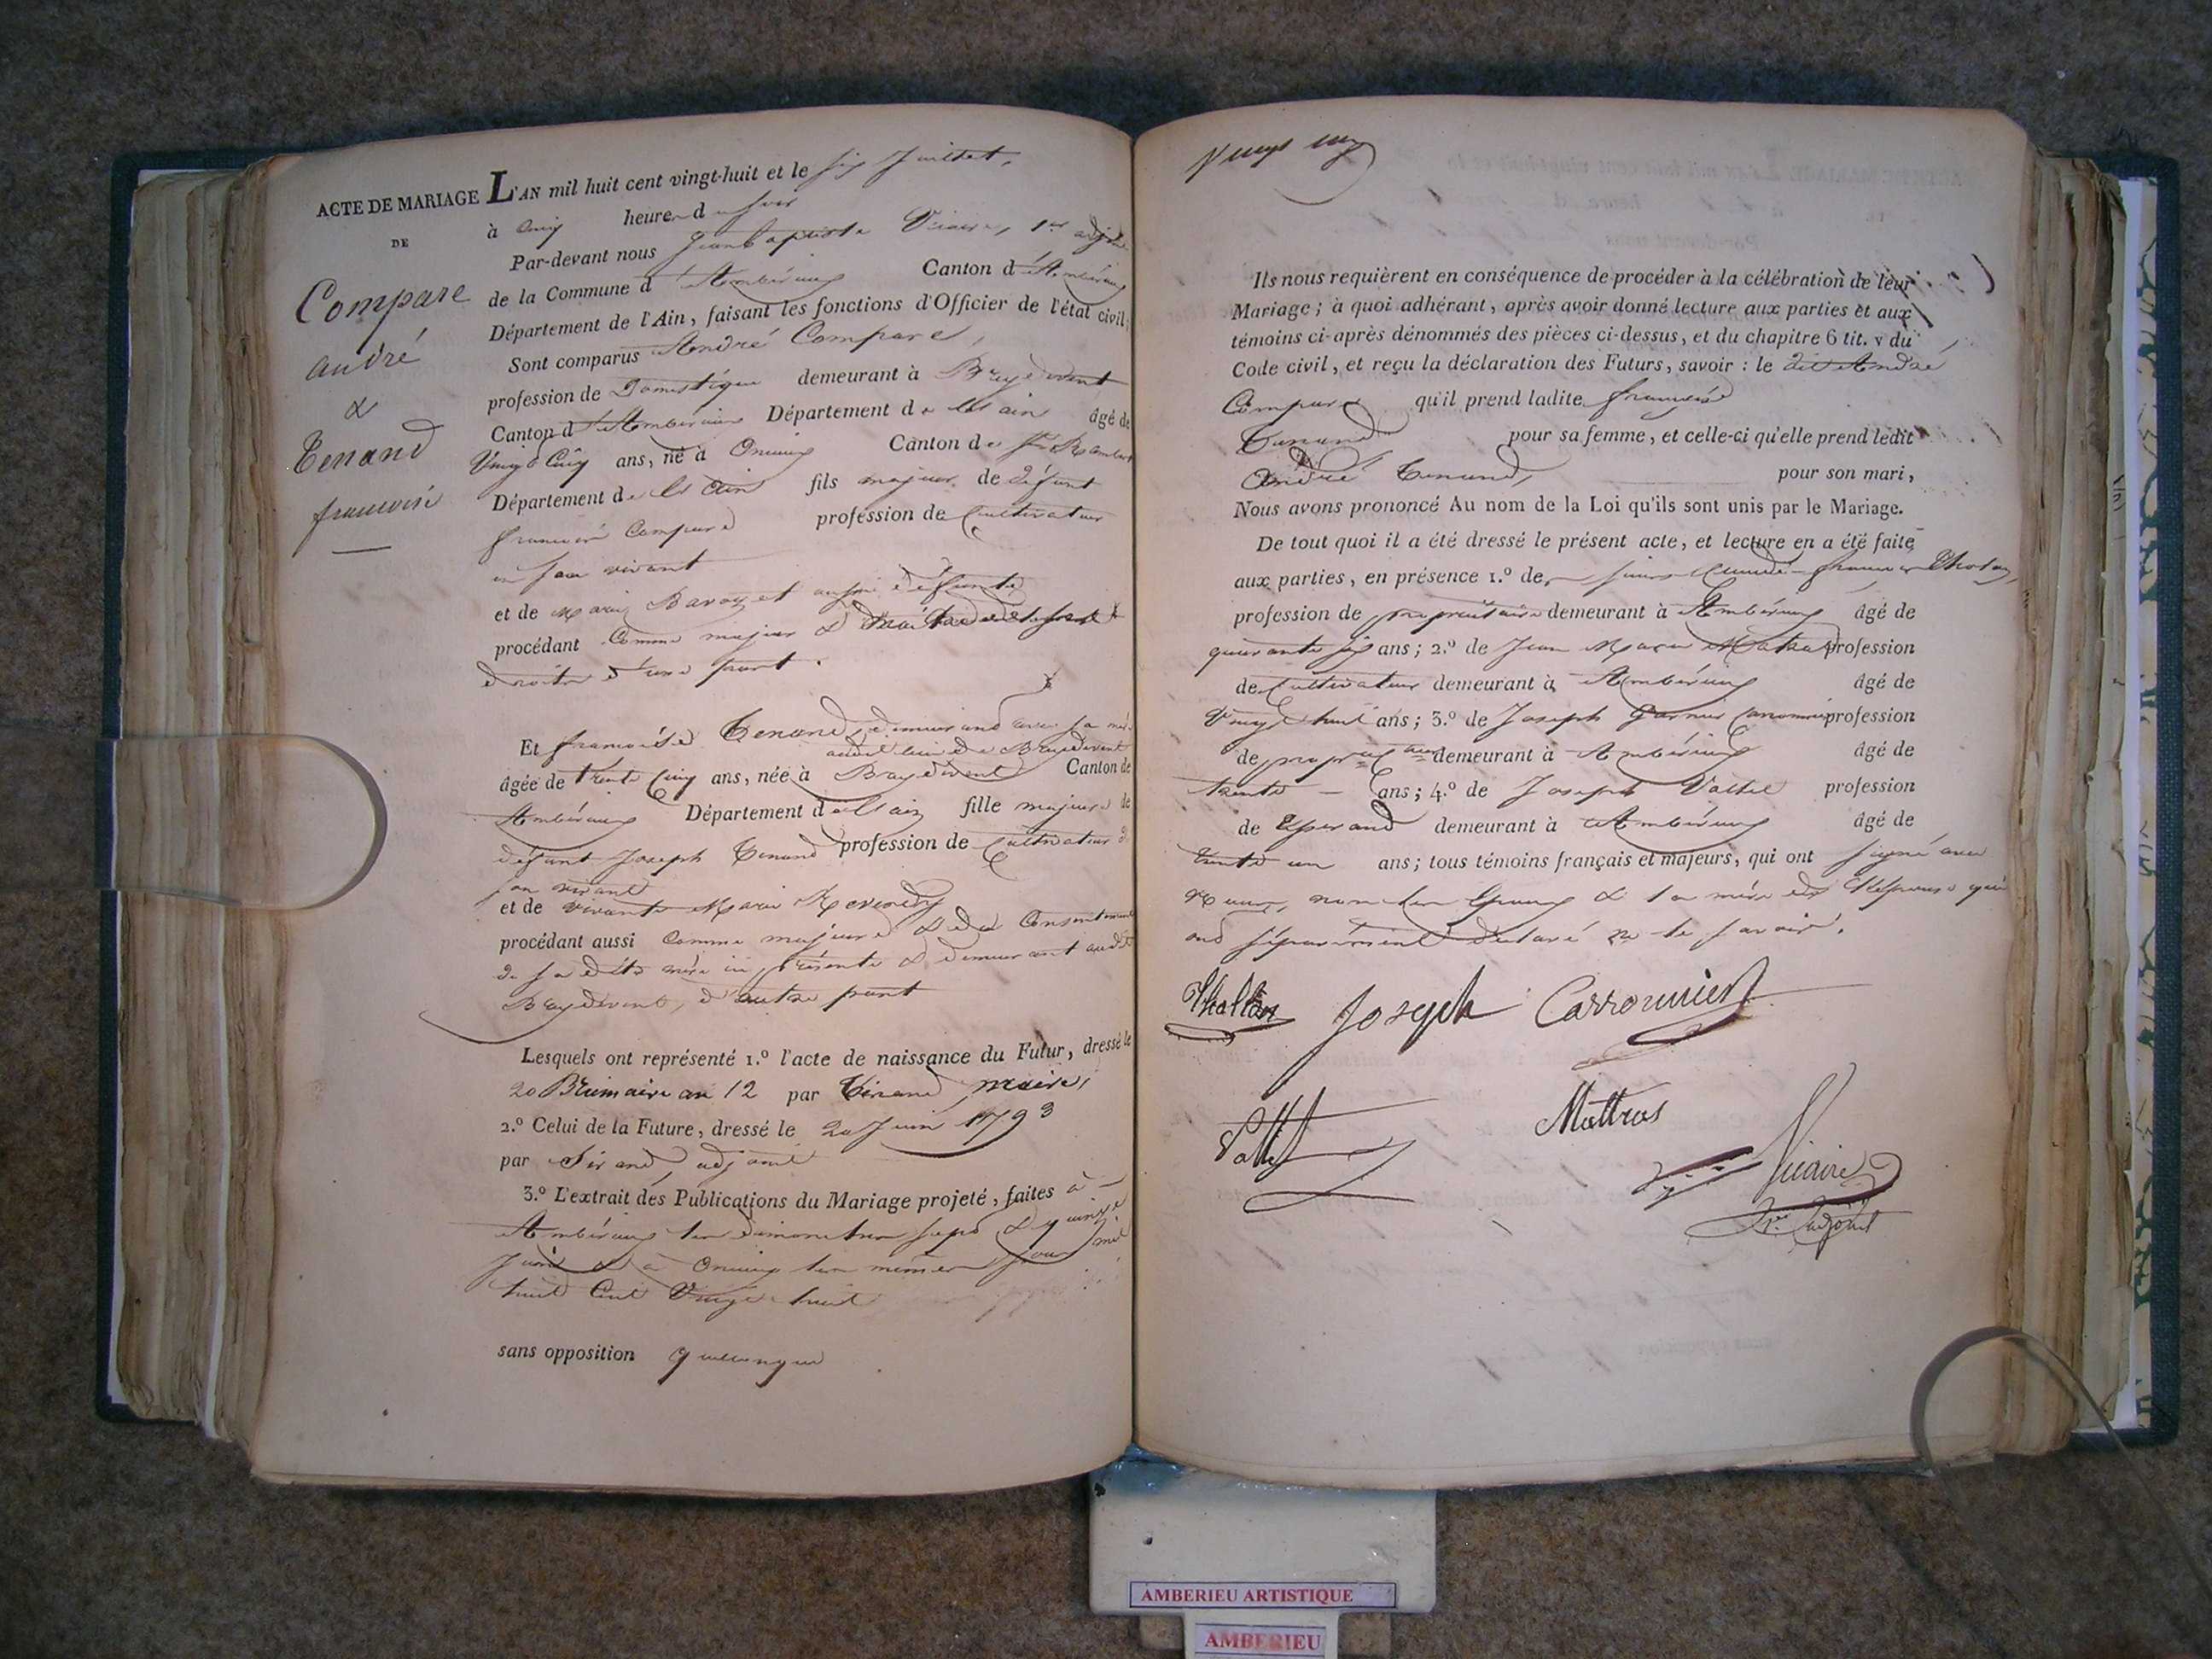 ACTE DE MARIAGE
DE
Compare
andré
&
Tenand
francoise
L'AN mil huit cent vingt-huit et le six Juillet,
à Cinq heures du soir
Par-devant nous Jean baptiste Vicaire, 1er adjoint
de la Commune d'Ambérieux Canton d'Ambérieux
Département de l'Ain, faisant les fonctions d'Officier de l'état civil
Sont comparus André Compare,
profession de Domestique demeurant à Breydevent
Canton d'Ambérieux Département de l'ain âgé de
Vingt Cinq ans, né à Oncieux Canton de St Rambert
Département de l'Ain fils majeur de défunt
francois Compare profession de Cultivateur
en son vivant
et de Marie Bavozet aussi défunte
procédant Comme majeur &
droits d'une part.
Et francoise Tenand, demeurand avec sa mère
audit lieu de Breydevent
âgée de trente Cinq ans, née à Breydevent Canton de
Ambérieux Département de l'ain fille majeure de
défunt Joseph Tenand profession de Cultivateur
son vivant
et de vivante Marie
procédant aussi Comme majeure & du Consentement
de sa dite mère ici présente & demeurant audit
Breydevent, d'autre part
Lesquels ont représenté 1.º l'acte de naissance du Futur, dressé le
20 Brumaire an 12 par Tenand maire,
2.º Celui de la Future, dressé le 20 Juin 1793
par Sirand adjoint
3.º L'extrait des Publications du Mariage projeté, faites à
Ambérieux les dimanches sept & quinze
Juin & à Oncieux les mêmes jours mil
huit Cent Vingt huit
sans opposition quelconque
Vingt cinq
Ils nous requièrent en conséquence de procéder à la célébration de leur
Mariage; à quoi adhérant, après avoir donné lecture aux parties et aux
témoins ci-après dénommés des pièces ci-dessus, et du chapitre 6 tit. v du
Code civil, et reçu la déclaration des Futurs, savoir : le dit André
Compare qu'il prend ladite francoise
Tenand pour sa femme, et celle-ci qu'elle prend ledit
André Tenand, pour son mari,
Nous avons prononcé Au nom de la Loi qu'ils sont unis par le Mariage.
De tout quoi il a été dressé le présent acte, et lecture en a été faite
aux parties, en présence 1.º de Claude francois
profession de propriétaire demeurant à Ambérieux âgé de
quarante six ans; 2.º de Jean Marie Matras profession
de Cultivateur demeurant à Ambérieux âgé de
Vingt huit ans; 3.º de Joseph Garnier profession
de demeurant à Ambérieux âgé de
trente ans; 4.º de Joseph Vallet profession
de demeurant à Ambérieux âgé de
trente un ans; tous témoins français et majeurs, qui ont signé avec
nous, non les Epoux & la mère de l'Epouse qui
ond séparément déclaré ne le savoir.
Joseph Carronnier
Vallet
Mattras
Vicaire
1er Adjoint
AMBERIEU ARTISTIQUE
AMBERIEU